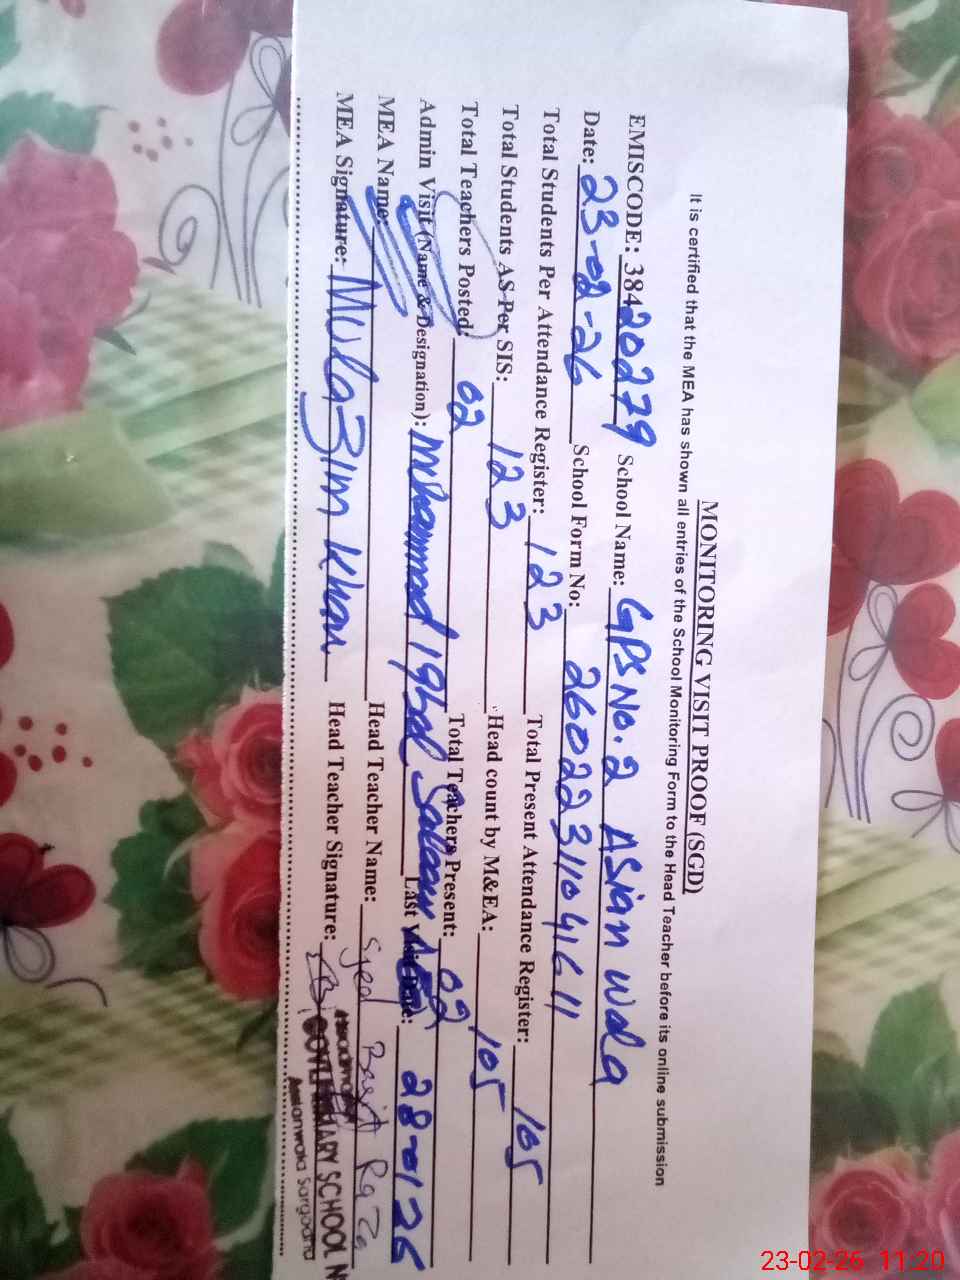 MONITORING VISIT PROOF (SGD)
It is certified that the MEA has shown all entries of the School Monitoring Form to the Head Teacher before its online submission
EMISCODE: 38420279 School Name: GPS No. 2 ASian Wala
Date: 23-02-26 School Form No: 26022311041611
Total Students Per Attendance Register: 123 Total Present Attendance Register: 105
Total Students AS Per SIS: 123 Head count by M&EA: 105
Total Teachers Posted: 02 Total Teachers Present: 02
Admin Visit (Name & Designation): Muhammad Iqbal Saleem AEO Last Visit Date: 28-01-26
MEA Name: Head Teacher Name: Syed Basit Raza
MEA Signature: Mulazim Khan Head Teacher Signature:
Headmaster
GOVT PRIMARY SCHOOL N
Asianwala Sargodha
23-02-26 11:20